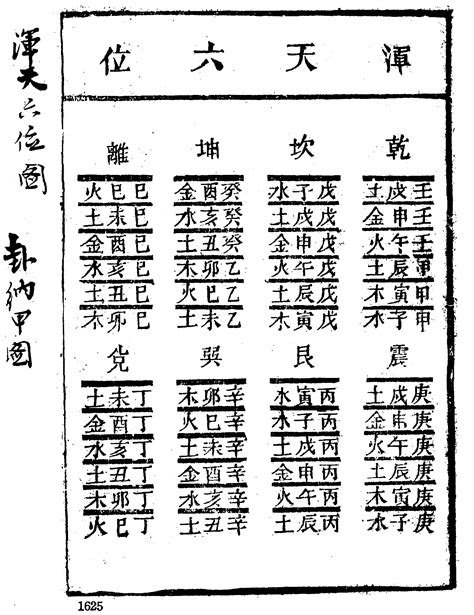 渾天六位
乾
壬戌土
壬申金
壬午火
甲辰土
甲寅木
甲子水
坎
戊子水
戊戌土
戊申金
戊午火
戊辰土
戊寅木
坤
癸酉金
癸亥水
癸丑土
乙卯木
乙巳火
乙未土
離
己巳火
己未土
己酉金
己亥水
己丑土
己卯木
震
庚戌土
庚申金
庚午火
庚辰土
庚寅木
庚子水
艮
丙寅水
丙子水
丙戌土
丙申金
丙午火
丙辰土
巽
辛卯木
辛巳火
辛未土
辛酉金
辛亥水
辛丑土
兌
丁未土
丁酉金
丁亥水
丁丑土
丁卯木
丁巳火
渾天六位图
卦納甲图
1625